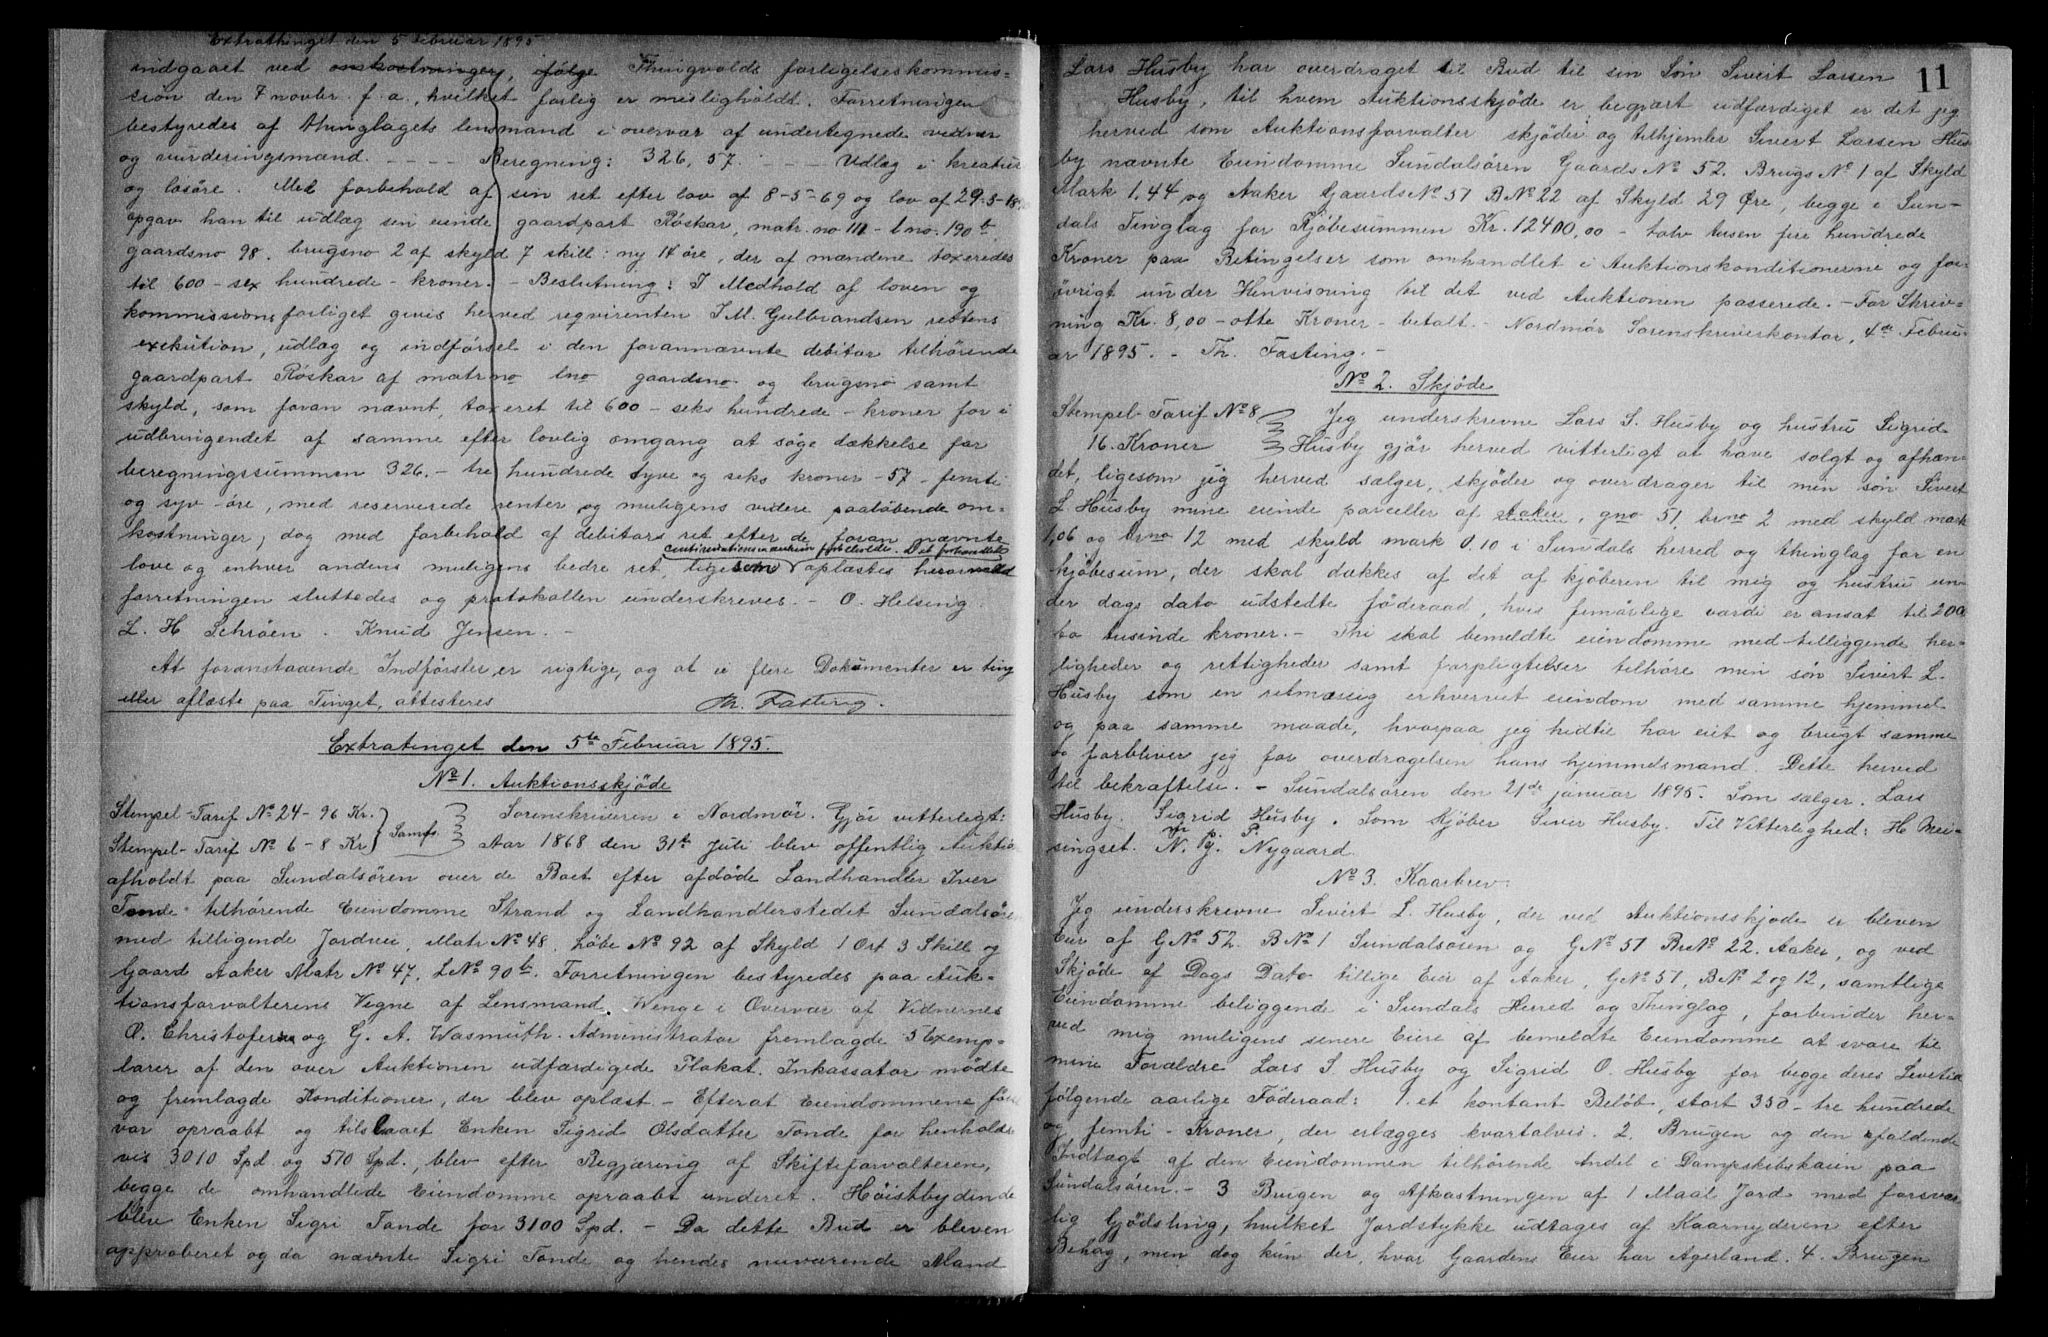 Extrathinget den 5 Februar 1895
indgaaet ved omkostninger, ifølge Thingvolds forligelseskommis-
sion den 7 novbr. f. a., hvilket forlig er misligholdt. Forretningen
bestyredes af thinglagets lensmand i overvær af undertegnede vidner
og vurderingsmænd. - - - - Beregning: 326,57. - - - Udlæg i kreatur
og løsøre. Med forbehold af sin ret efter lov af 8-5-69 og lov af 29-3-18
opgav han til udlæg sin eiende gaardpart Röskar, matr. no 111 - lno. 190b.
gaardsno 98. brugsno 2 af skyld 7 skill: ny 14 öre, der af mændene taxeredes
til 600 - sex hundrede - kroner. - Beslutning: I Medhold af loven og
kommissionsforliget givis herved reqvirenten J. M. Gulbrandsen rettens
exekution, udlæg og indførsel i den forannævnte debitor tilhørende
gaardpart Röskar af matrno lno gaardsno og brugsno samt
skyld, som foran nævnt, taxeret til 600 - seks hundrede - kroner for i
udbringendet af samme efter lovlig omgang at søge dækkelse for
beregningssummen 326. - tre hundrede tyve og seks kroner - 57 - femti
og syv - öre, med reserverede renter og muligens videre paaløbende om-
kostninger, dog med forbehold af debitors ret efter de foran nævnte
love og enhver andens muligens bedre ret, ligesom continuationsin aukum forbeholdt. Det forhandlede oplæstes hvormed
forretningen sluttedes og protokollen underskreves. - O. Helsing.
L. H Schröen. Knud Jensen. -
At foranstaaende Indførsler er rigtige, og at ei flere Dokumenter er ting
eller aflæste paa Tinget, attesteres Th. Fasting.
Extratinget den 5te Februar 1895.
No 1. Auktionsskjöde
Stempel-Tarif No 24 - 96 Kr.
Stempel-Tarif No 6 - 8 Kr } Samfr. } Sorenskriveren i Nordmör. Gjör vitterligt:
Aar 1868 den 31te Juli blev offentlig Auktion
afholdt paa Sundalsören over de Boet efter afdøde Landhandler Iver
Tonde tilhørende Eiendomme Strand og Landhandlerstedet Sundalsören
med tilligende Jordvei, Matr No 48. Løbe No 92 af Skyld 1 Ort 3 Skill og
Gaard Aaker Matr No 47. L No 90b. Forretningen bestyredes paa Auk-
tionsforvalterens Vegne af Lensmand Wenge i Overvær af Vidnernes
O. Christofersen og G. A. Wasmuth. Administrator fremlagde 3 Exemp-
larer af den over Auktionen udfærdigede Plakat. Inkassator mødte
og fremlagde Konditioner, der blev oplæst. - Efterat Eiendommene först
var opraabt og tilslaaet Enken Sigrid Olsdatter Tonde for henholds
vis 3010 Spd. og 510 Spd., blev efter Begjæring af Skifteforvalteren,
begge de omhandlede Eiendomme opraabt underet. Höistbydende
blev Enken Sigri Tonde for 3100 Spd. - Da dette Bud er bleven
approberet og da nævnte Sigri Tonde og hendes nuværende Mand
11
Lars Husby har overdraget sit Bud til sin Sön Sivert Larsen
Husby, til hvem Auktionsskjöde er begjært udfærdiget er det jeg
herved som Auktionsforvalter skjøder og tilhjemler Sivert Larsen Hus-
by nævnte Eiendomme Sundalsören Gaards No 52. Brugs No 1 af Skyld
Mark 1.44 og Aaker Gaards No 51 B No 22 af Skyld 29 Øre, begge i Sun-
dals Tinglag for Kjöbesummen Kr. 12400,00 - tolv tusen fire hundrede
Kroner paa Betingelser som omhandlet i Auktionskonditionerne og for-
övrigt under Henvisning til det ved Auktionen passerede. - For Skriv-
ning Kr. 8,00 - otte Kroner - betalt. - Nordmör Sorenskriverkontor, 4de Febru-
ar 1895. - Th. Fasting. -
No 2. Skjöde
Stempel-Tarif No 8
16. Kroner } Jeg underskrevne Lars S. Husby og hustru Sigrid
Husby gjör herved vitterligt at have solgt og afhæn-
det, ligesom jeg herved sælger, skjøder og overdrager til min søn Sivert
L Husby mine eiende parceller af Aaker, gno 51, brno 2 med skyld mark
1,06 og brno 12 med skyld mark 0.10 i Sundals herred og thinglag for en
kjøbesum, der skal dækkes af det af kjøberen til mig og hustru un-
der dags dato udstedte föderaad, hvis femårlige værdi er ansat til 2000
to tusinde kroner. - Thi skal bemeldte eiendomme med tilliggende her-
ligheder og rettigheder samt forpligtelser tilhøre min søn Sivert L.
Husby som en retmæssig erhvervet eiendom med samme hjemmel
og paa samme maade, hvorpaa jeg hidtil har eiet og brugt samme
og forbliver jeg for overdragelsen hans hjemmelsmand. Dette herved
til bekræftelse. - Sundalsören den 21de januar 1895. Som sælger. Lars
Husby. Sigrid Husby. m. p. P. Som Kjöber Siver Husby. Til Vitterlighed: H Mei-
singset. N. J. Nygaard.
No 3. Kaarbrev.
Jeg underskrevne Sivert L. Husby, der ved Auktionsskjøde er bleven
Eier af G No 52. B No 1 Sundalsören og G No 51 Br No 22. Aaker, og ved
Skjöde af Dags Dato tillige Eier af Aaker, G No 51, B No 2 og 12, samtlige
Eiendomme beliggende i Sundals Herred og Thinglag, forbinder her-
ved mig muligens senere Eiere af bemeldte Eiendomme at svare til
mine Forældre Lars S. Husby og Sigrid O. Husby for begge deres Livetid
følgende aarlige Föderaad: 1. et kontant Beløb, stort 350 - tre hundrede
og femti - Kroner, der erlægges kvartalvis. 2. Brugen og den afaldende
Indtægt af den Eiendommen tilhørende Andel i Dampskibskaien paa
Sundalsören. - 3 Brugen og Afkastningen af 1 Maal Jord med forsvar-
lig Gjødsling, hvilket Jordstykke udtages af Kaarnyderen efter
Behag, men dog kun der, hvor Gaardens Eier har Agerland. 4. Brugen